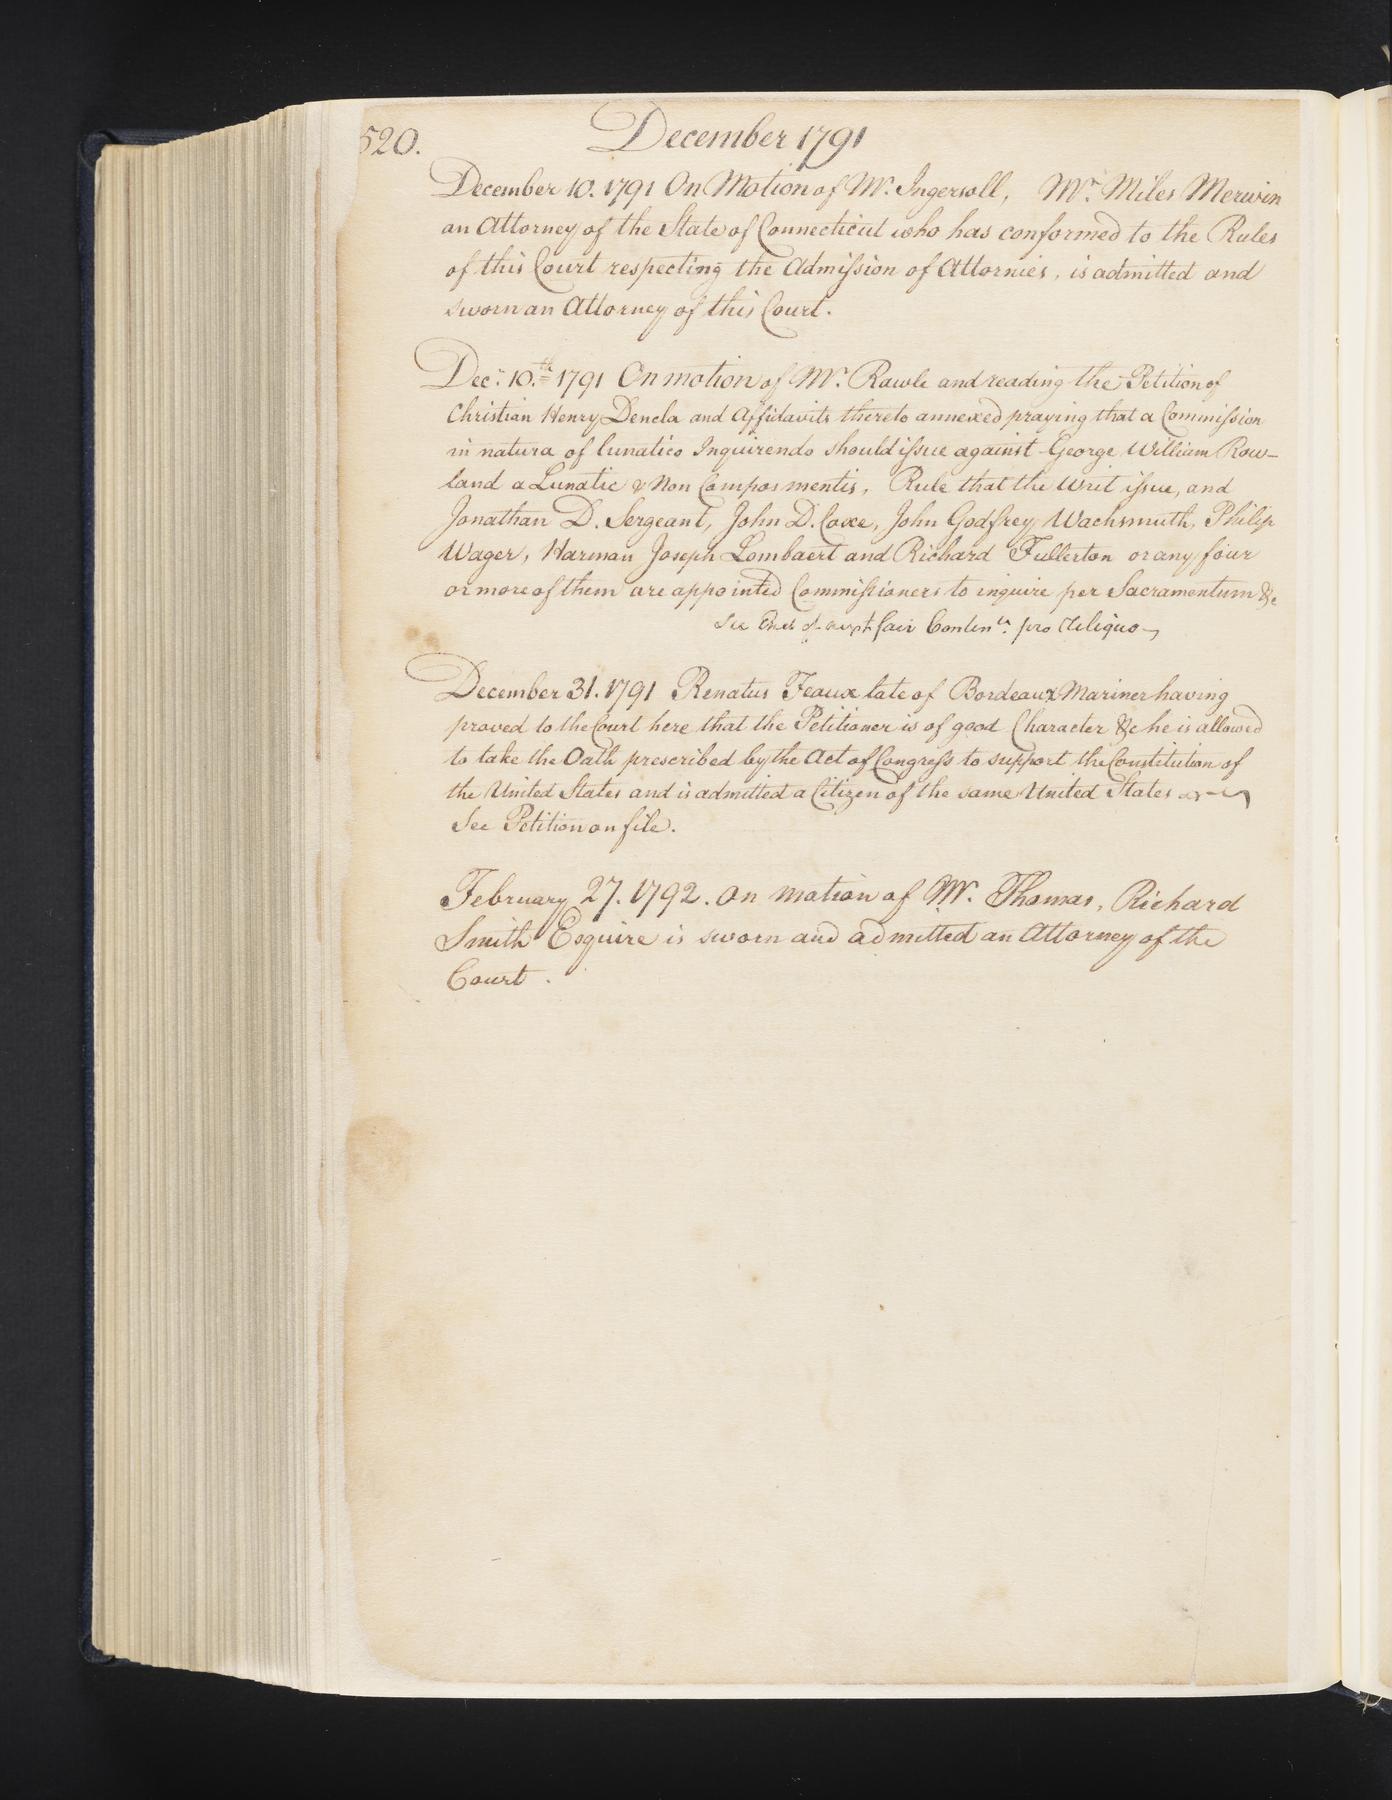 520.
December 1791
December 10. 1791 On Motion of Mr. Ingersoll, Mr. Miles Merwin
an Attorney of the State of Connecticut who has conformed to the Rules
of this Court respecting the Admission of Attornies, is admitted and
sworn an Attorney of this Court.
Decr. 10th 1791 On motion of Mr. Rawle and reading the Petition of
Christian Henry Denckla and Affidavits thereto annexed praying that a Commission
in natura of lunatico Inquirendo should issue against George William Row-
land a Lunatic & Non Compos mentis, Rule that the Writ issue, and
Jonathan D. Sergeant, John D. Coxe, John Godfrey Wachsmuth, Philip
Wager, Harman Joseph Lombaert and Richard Fullerton or any four
or more of them are appointed Commissioners to inquire per Sacramentum &c
See fair pro Reliquo
December 31. 1791 Renatus Feaux late of Bordeaux Mariner having
proved to the Court here that the Petitioner is of good Character &c he is allowed
to take the Oath prescribed by the Act of Congress to support the Constitution of
the United States and is admitted a Citizen of the same United States
See Petition on file.
February 27. 1792. On motion of Mr. Thomas, Richard
Smith Esquire is sworn and admitted an Attorney of the
Court.